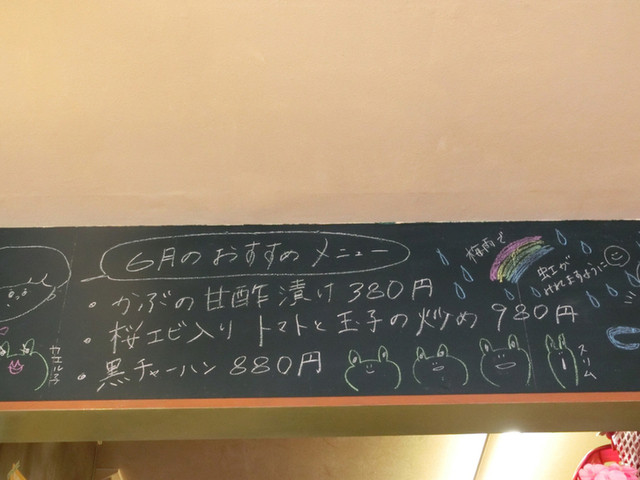 6月のおすすめメニュー
・かぶの甘酢漬け380円
・桜エビ入りトマトと玉子の炒め980円
・黒チャーハン880円
梅雨で
虹が
スリム